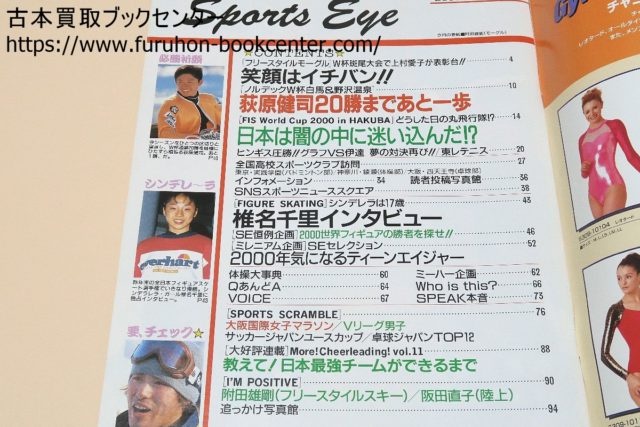 古本買取ブックセンター
https://www.furuhon-bookcenter.com/
Sports Eye
CONTENTS
「フリースタイルモーグル」W杯斑尾大会で上村愛子が表彰台!! 4
笑顔はイチバン!!
[ノルディックW杯白馬&野沢温泉] 10
荻原健司20勝まであと一歩
[FIS World Cup 2000 in HAKUBA] どうした日の丸飛行隊!? 14
日本は闇の中に迷い込んだ!?
ヒンギス圧勝!!グラフVS伊達 夢の対決再び!!東レテニス 20
全国高校スポーツクラブ訪問 27
インフォメーション 34 読者投稿写真館 36
SNSスポーツニューススクエア 38
[FIGURE SKATING] シンデレラは17歳 43
椎名千里インタビュー
[SE恒例企画]2000世界フィギュアの勝者を探せ!! 46
[ミレニアム企画]SEセレクション 52
2000年気になるティーンエイジャー
体操大事典 60 ミーハー企画 62
QあんどA 64 Who is this? 66
VOICE 67 SPEAK本音 73
[SPORTS SCRAMBLE] 76
大阪国際女子マラソン/Vリーグ男子
サッカージャパンユースカップ/卓球ジャパンTOP12
[大好評連載] More! Cheerleading! vol.11 88
教えて!日本最強チームができるまで
[I'M POSITIVE] 90
附田雄剛(フリースタイルスキー)/阪田直子(陸上)
追っかけ写真館 94
必勝祈願
P10
シンデレーラ
everhart
P43
要、チェック☆
チャー
レオタード、オールタイ